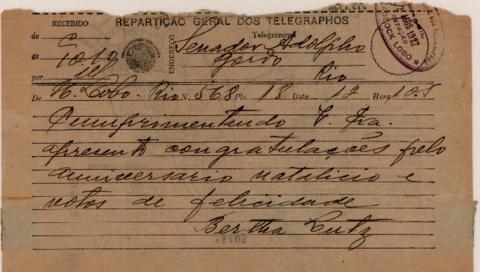 RECEBIDO
REPARTIÇÃO GERAL DOS TELEGRAPHOS
Telegramma
de
de 10.10
por
ENDEREÇO
Senador Adolpho
Gordo
Rio
De H. Lobo - Rio N. 568 Pls. 18 Data 12 Hora 10.5
Cumprimentando V. Exa.
apresento congratulações pelo
anniversario natalicio e
votos de felicidade
Bertha Lutz